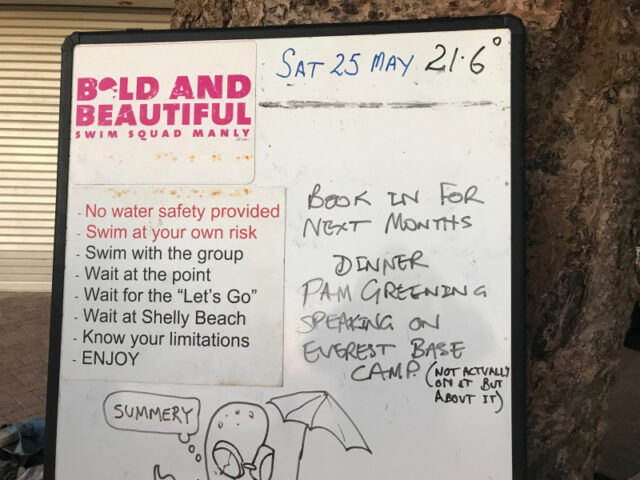 BOLD AND
BEAUTIFUL
SWIM SQUAD MANLY
SAT 25 MAY 21.6°
- No water safety provided
- Swim at your own risk
- Swim with the group
- Wait at the point
- Wait for the “Let's Go”
- Wait at Shelly Beach
- Know your limitations
- ENJOY
BOOK IN FOR
NEXT MONTHS
DINNER
PAM GREENING
SPEAKING ON
EVEREST BASE
CAMP (NOT ACTUALLY
ON IT BUT
ABOUT IT)
SUMMERY